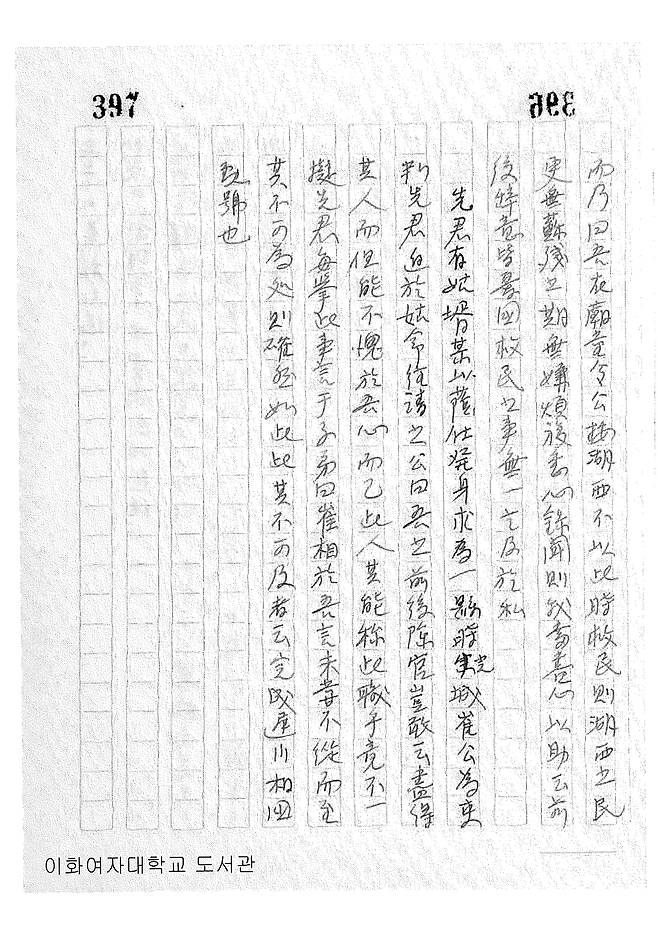 397
396
而乃曰吾在廟堂令公按湖西不以此時救民則湖西之民
更無蘇殘之期無嫌煩複悉心錄聞則我當盡心以助云前
後辭意皆憂國救民之事無一言及於私
先君有姑壻某以蔭仕發身求為一縣時完城崔公為吏
判先君迫於姑命往請之公曰吾之前後除官豈敢云盡得
其人而但能不愧於吾心而已此人其能稱此職乎竟不一
擬先君每擧此事言于子弟曰崔相於吾言未嘗不從而至
其不可為處則確然如此此其不可及者云完城遲川相國
勳號也
이화여자대학교 도서관